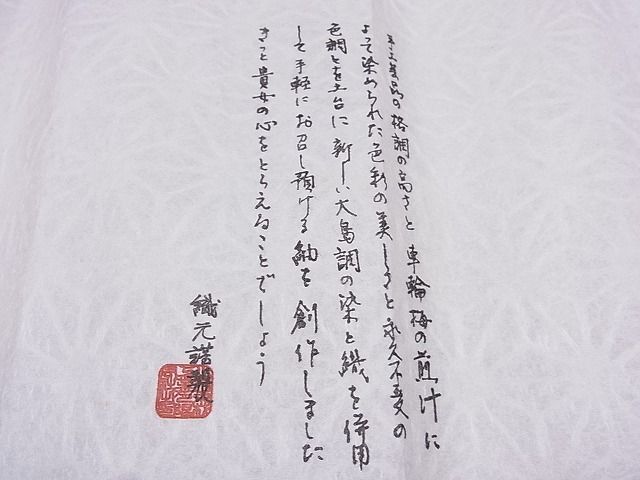 の格調の高さと車輪梅の煎汁に
よって染められた色彩の美しさと永久不変の
色調とを土台に新しい大島調の染と織を併用
して手軽にお召し頂ける紬を創作しました
きっと貴女の心をとらえることでしょう
織元